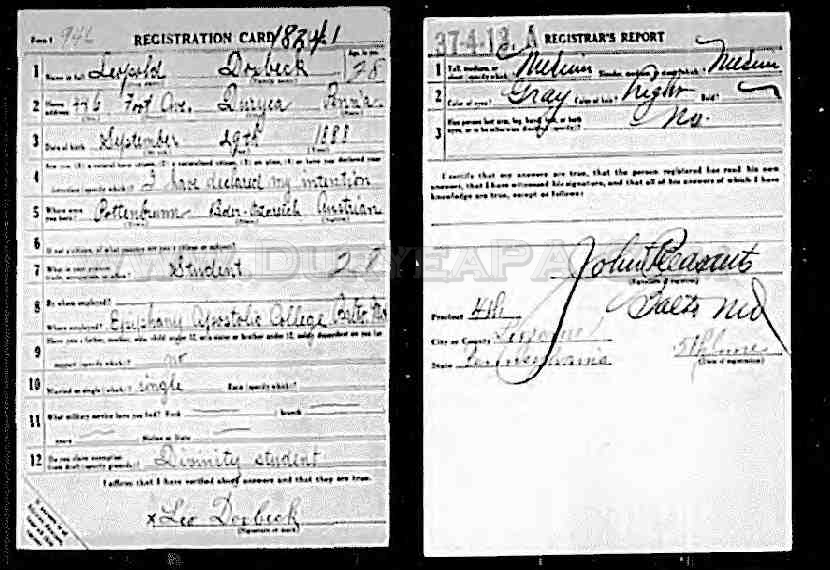 Form 1 942 REGISTRATION CARD 18241
Age, in yrs.
1 Name in full Leopold Dorbeck 28
2 Home address 446 Foot Ave. Duryea Penn'a
3 Date of birth September 29th 1888
Are you (1) a natural born citizen, (2) a naturalized citizen, (3) an alien, (4) or have you declared your
4 intention (specify which)? I have declared my intention
5 Where were you born? Pottenbrunn Austrian
6 If not a citizen, of what country are you a citizen or subject?
7 What is your present Student
8 By whom employed?
Where employed? Epiphany Apostolic College Balto. Md
Have you a father, mother, wife, child under 12, or a sister or brother under 12, solely dependent on you for
9 support (specify which)? no
10 Married or single (which)? single Race (specify which)?
11 What military service have you had? Rank branch
years Nation or State
12 Do you claim exemption from draft (specify grounds)? Divinity student
I affirm that I have verified above answers and that they are true.
x Leo Dorbeck
(Signature or mark)
37-4-13. A REGISTRAR'S REPORT
1 Tall, medium, or short (specify which)? Medium Slender, medium, or stout (which)? Medium
2 Color of eyes? Gray Color of hair? Bald?
3 Has person lost arm, leg, hand, foot, or both eyes, or is he otherwise disabled (specify)? No.
I certify that my answers are true, that the person registered has read his own
answers, that I have witnessed his signature, and that all of his answers of which I have
knowledge are true, except as follows:
WWW.DURYEAPA.COM
John Pleasants
(Signature of registrar)
Precinct 4th Balto Md
City or County Luzerne
State Pennsylvania
(Date of registration)